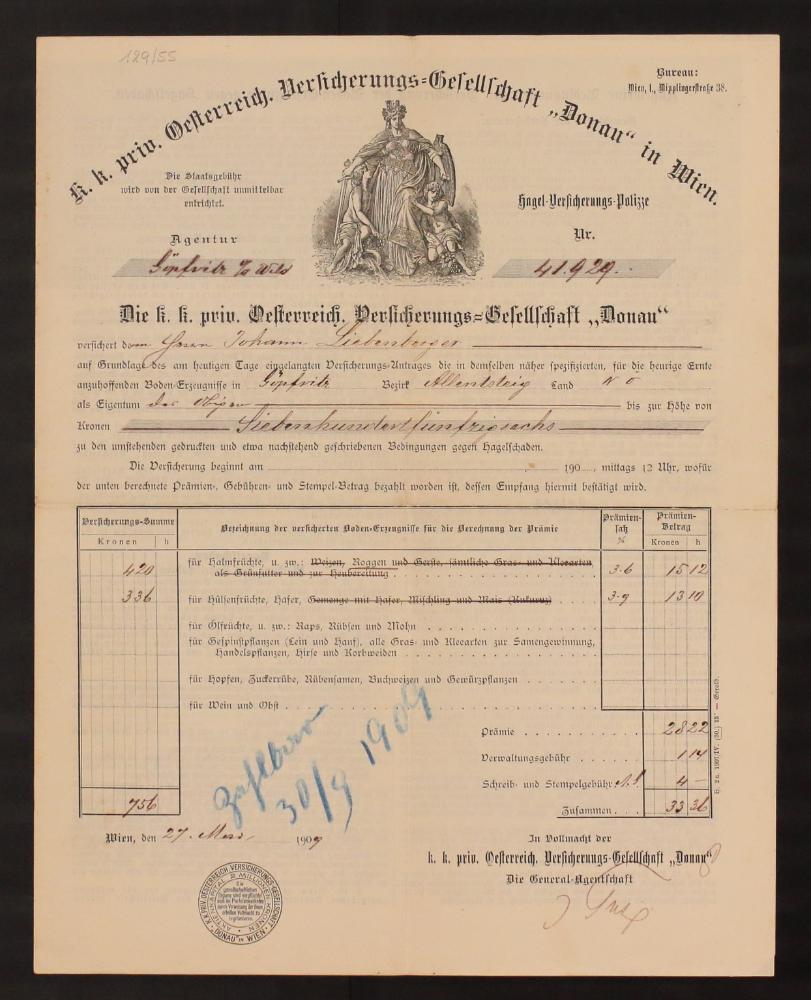 129/55
Bureau:
Wien, I., Wipplingerstraße 38.
K. k. priv. Oesterreich. Versicherungs-Gesellschaft „Donau“ in Wien.
Die Staatsgebühr
wird von der Gesellschaft unmittelbar
entrichtet.
Hagel-Versicherungs-Polizze
Agentur
Nr.
Göpfritz a/d Wild
41.929.
Die k. k. priv. Oesterreich. Versicherungs-Gesellschaft „Donau“
versichert dem Herrn Johann Liebenberger
auf Grundlage des am heutigen Tage eingelangten Versicherungs-Antrages die in demselben näher spezifizierten, für die heurige Ernte
anzuhoffenden Boden-Erzeugnisse in Göpfritz Bezirk Allentsteig Land N Ö
als Eigentum des Obigen bis zur Höhe von
Kronen Siebenhundertfünfzigsechs
zu den umstehenden gedruckten und etwa nachstehend geschriebenen Bedingungen gegen Hagelschaden.
Die Versicherung beginnt am 190 , mittags 12 Uhr, wofür
der unten berechnete Prämien-, Gebühren- und Stempel-Betrag bezahlt worden ist, dessen Empfang hiermit bestätigt wird.
Versicherungs-Summe Bezeichnung der versicherten Boden-Erzeugnisse für die Berechnung der Prämie Prämien-satz % Prämien-Betrag
Kronen h Kronen h
420 für Halmfrüchte, u. zw.: Weizen, Roggen und Gerste, sämtliche Gras- und Kleearten, 3·6 15 12
als Grünfutter und zur Heubereitung
336 für Hülsenfrüchte, Hafer, Gemenge mit Hafer, Mischling und Mais (Kukuruz) 3·9 13 10
für Ölfrüchte, u. zw.: Raps, Rübsen und Mohn
für Gespinstpflanzen (Lein und Hanf), alle Gras- und Kleearten zur Samengewinnung,
Handelspflanzen, Hirse und Korbweiden
für Hopfen, Zuckerrübe, Rübensamen, Buchweizen und Gewürzpflanzen
für Wein und Obst
Prämie 28 22
Verwaltungsgebühr 1 14
Schreib- und Stempelgebühr 4 –
756 Zusammen 33 36
zahlbar
30/9 1909
Wien, den 27. Mai 1909
In Vollmacht der
k. k. priv. Oesterreich. Versicherungs-Gesellschaft „Donau“
Die General-Agentschaft
K. K. PRIV. OESTERREICH VERSICHERUNGS GESELLSCHAFT
"DONAU" IN WIEN